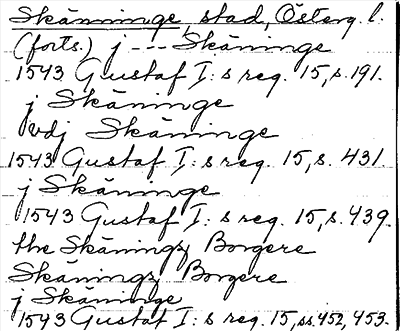 Skänninge, stad, Österg. l.
(forts.) j --- Skäninge
1543 Gustaf I:s reg. 15, s. 191.
j Skäninge
vdj Skäninge
1543 Gustaf I:s reg. 15, s. 431.
j Skäninge
1543 Gustaf I:s reg. 15, s. 439.
the Skänings Borgere
Skänings Borgere
j Skäninge
1543 Gustaf I:s reg. 15, ss 452, 453.